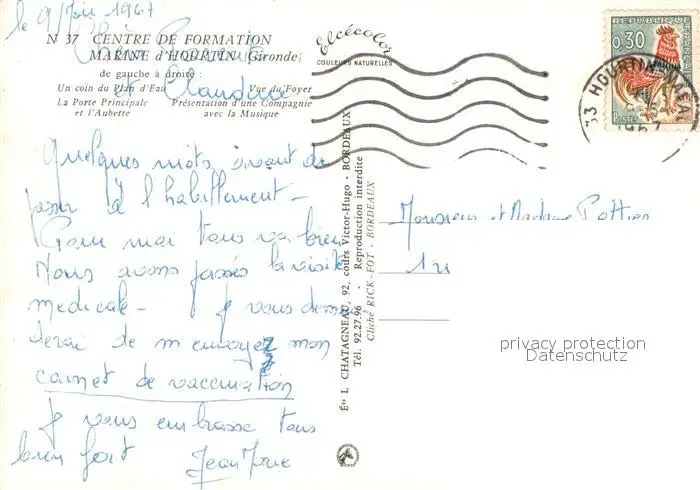 le 9 Juin 1967
N 37 CENTRE DE FORMATION
MARINE d'HOURTIN (Gironde)
de gauche à droite :
Un coin du Plan d'Eau Vue du Foyer
La Porte Principale Présentation d'une Compagnie
et l'Aubette avec la Musique
Elcécolor
COULEURS NATURELLES
REPUBLIQUE FRANCAISE
0,30
POSTES
33 HOURTIN
1967
Chère
et Claudine
Quelques mots avant de
passer à l'habillement -
Pour moi tous va bien
Nous avons passés la visite
medicale - Je vous deman
derai de m'envoyez mon
carnet de vaccination
Je vous embrasse tous
bien fort Jean Marie
Éts L CHATAGNEAU, 92, cours Victor-Hugo - BORDEAUX
Tél. 92.27.96 - Reproduction interdite
Cliché RICK-FOT - BORDEAUX
Monsieur et Madame Pottier
privacy protection
Datenschutz